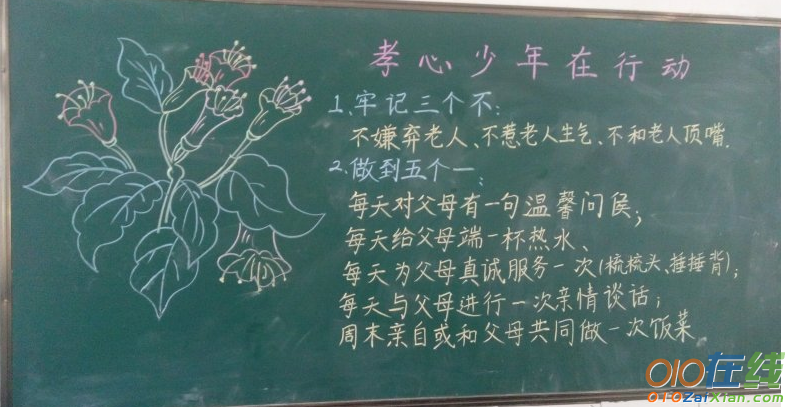 孝心少年在行动
1、牢记三个不:
不嫌弃老人、不惹老人生气、不和老人顶嘴.
2.做到五个一:
每天对父母有一句温馨问侯;
每天给父母端一杯热水、
每天为父母真诚服务一次(梳梳头、捶捶背);
每天与父母进行一次亲情谈话;
周末亲自或和父母共同做一次饭菜
010在线
010ZaiXian.com